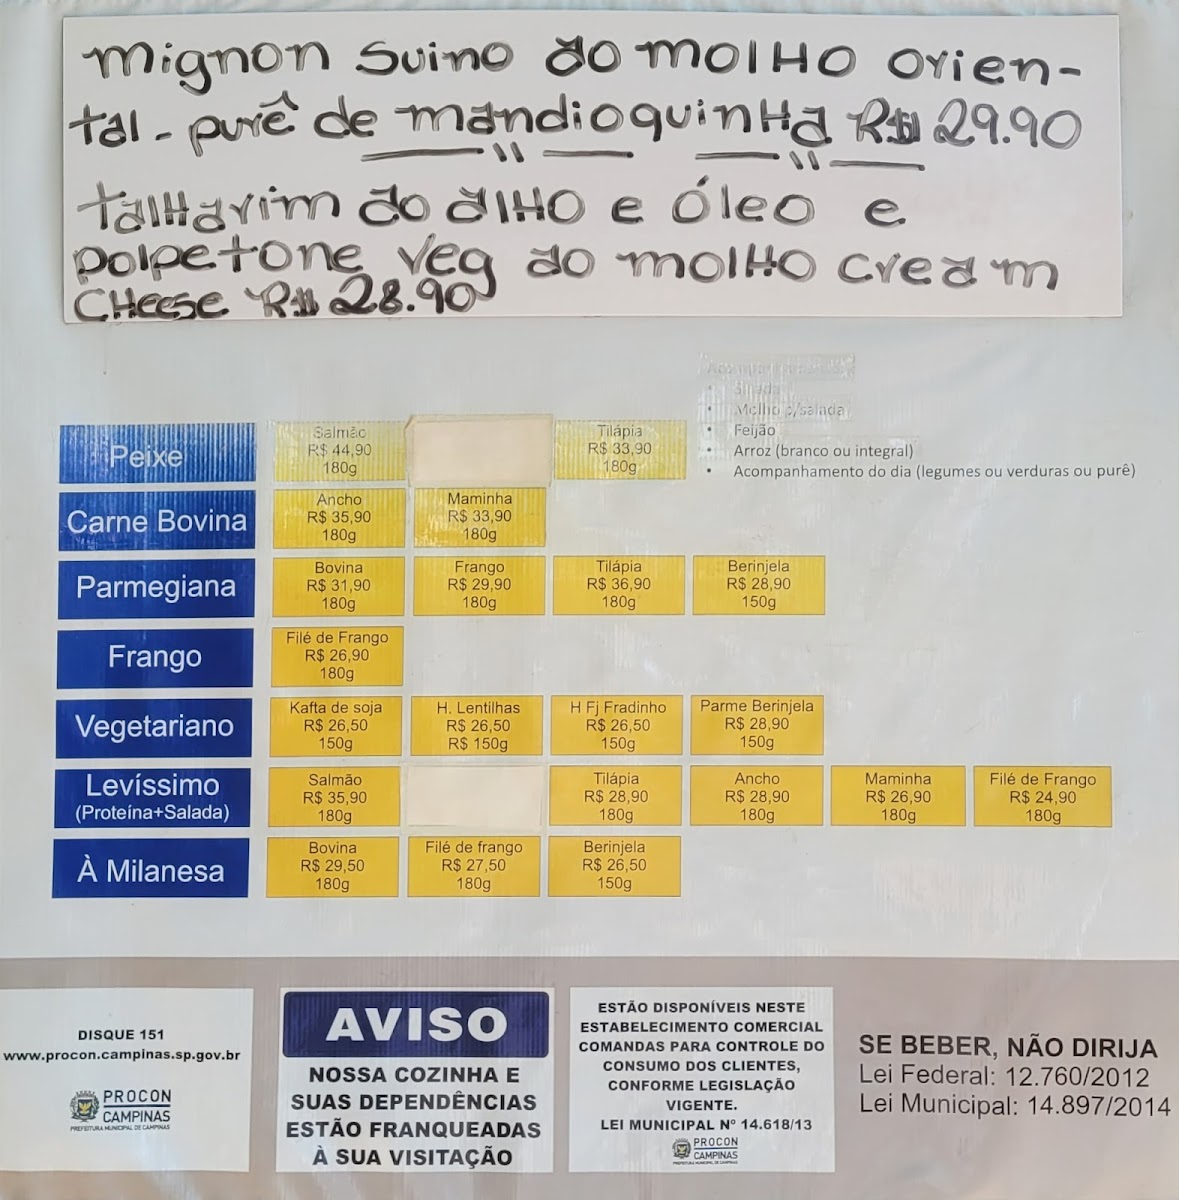 mignon suino ao molho orien-
tal - purê de mandioquinha R$ 29.90
talharim ao alho e óleo e
polpetone veg ao molho cream
cheese R$ 28.90
Salada
• Molho c/salada
• Feijão
• Arroz (branco ou integral)
• Acompanhamento do dia (legumes ou verduras ou purê)
Peixe
Salmão
R$ 44,90
180g
Tilápia
R$ 33,90
180g
Carne Bovina
Ancho
R$ 35,90
180g
Maminha
R$ 33,90
180g
Parmegiana
Bovina
R$ 31,90
180g
Frango
R$ 29,90
180g
Tilápia
R$ 36,90
180g
Berinjela
R$ 28,90
150g
Frango
Filé de Frango
R$ 26,90
180g
Vegetariano
Kafta de soja
R$ 26,50
150g
H. Lentilhas
R$ 26,50
R$ 150g
H Fj Fradinho
R$ 26,50
150g
Parme Berinjela
R$ 28,90
150g
Levíssimo
(Proteína+Salada)
Salmão
R$ 35,90
180g
Tilápia
R$ 28,90
180g
Ancho
R$ 28,90
180g
Maminha
R$ 26,90
180g
Filé de Frango
R$ 24,90
180g
À Milanesa
Bovina
R$ 29,50
180g
Filé de frango
R$ 27,50
180g
Berinjela
R$ 26,50
150g
DISQUE 151
www.procon.campinas.sp.gov.br
PROCON
CAMPINAS
PREFEITURA MUNICIPAL DE CAMPINAS
AVISO
NOSSA COZINHA E
SUAS DEPENDÊNCIAS
ESTÃO FRANQUEADAS
À SUA VISITAÇÃO
ESTÃO DISPONÍVEIS NESTE
ESTABELECIMENTO COMERCIAL
COMANDAS PARA CONTROLE DO
CONSUMO DOS CLIENTES,
CONFORME LEGISLAÇÃO
VIGENTE.
LEI MUNICIPAL Nº 14.618/13
PROCON
CAMPINAS
PREFEITURA MUNICIPAL DE CAMPINAS
SE BEBER, NÃO DIRIJA
Lei Federal: 12.760/2012
Lei Municipal: 14.897/2014